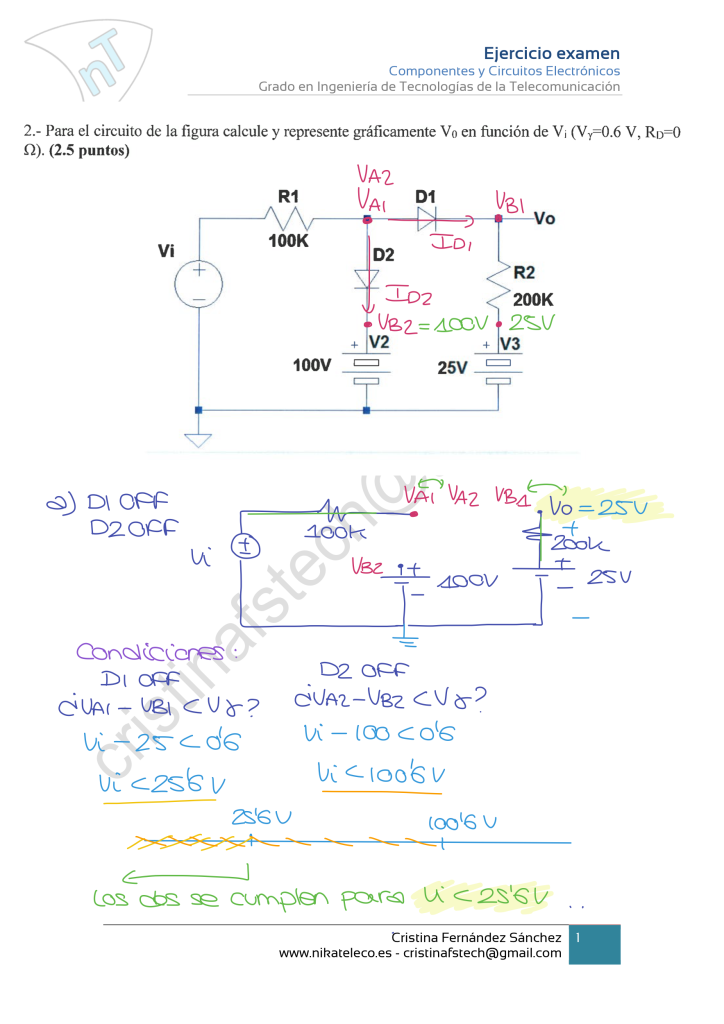 nT
Ejercicio examen
Componentes y Circuitos Electrónicos
Grado en Ingeniería de Tecnologías de la Telecomunicación
2.- Para el circuito de la figura calcule y represente gráficamente V0 en función de Vi (Vγ=0.6 V, RD=0
Ω). (2.5 puntos)
VA2
R1 VA1 D1 VB1
Vo
100K ID1
Vi D2
R2
ID2 200K
VB2 = 100V 25V
+ V2 + V3
100V 25V
a) D1 OFF
D2 OFF
VA1 VA2 VB1 Vo = 25V
100K + 200K
Vi
VB2 + 100V + 25V
cristinafstech@
Condiciones:
D1 OFF D2 OFF
¿VA1 - VB1 < Vγ? ¿VA2 - VB2 < Vγ?
Vi - 25 < 0'6 Vi - 100 < 0'6
Vi < 25'6 V Vi < 100'6 V
25'6 V 100'6 V
Los dos se cumplen para Vi < 25'6V ..
Cristina Fernández Sánchez 1
www.nikateleco.es - cristinafstech@gmail.com